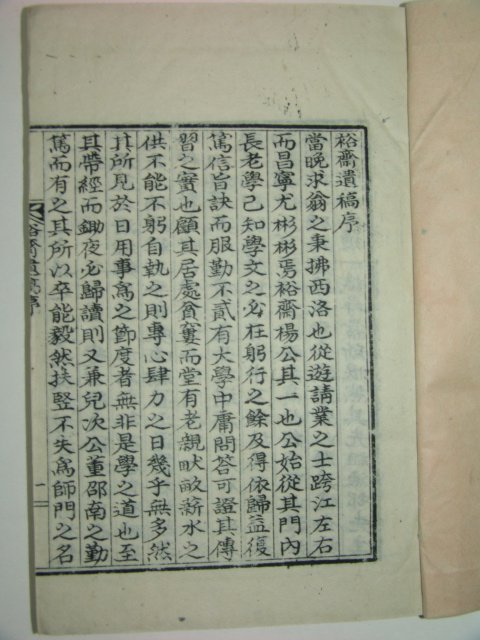 裕齋遺稿序
當晚求翁之秉拂西洛也從遊請業之士跨江左右
而昌寧尤彬彬焉裕齋楊公其一也公始從其門內
長老學已知學文之必在躬行之餘及得依歸益復
篤信旨訣而服勤不貳有大學中庸問答可證其傳
習之實也顧其居處貧窶而堂有老親畎畝薪水之
供不能不躬自執之則專心肆力之日幾乎無多然
其所見於日用事爲之節度者無非是學之道也至
其帶經而鋤夜必歸讀則又兼兒次公董邵南之勤
篤而有之其所以卒能毅然扶竪不失爲師門之名
裕齋遺稿序
一